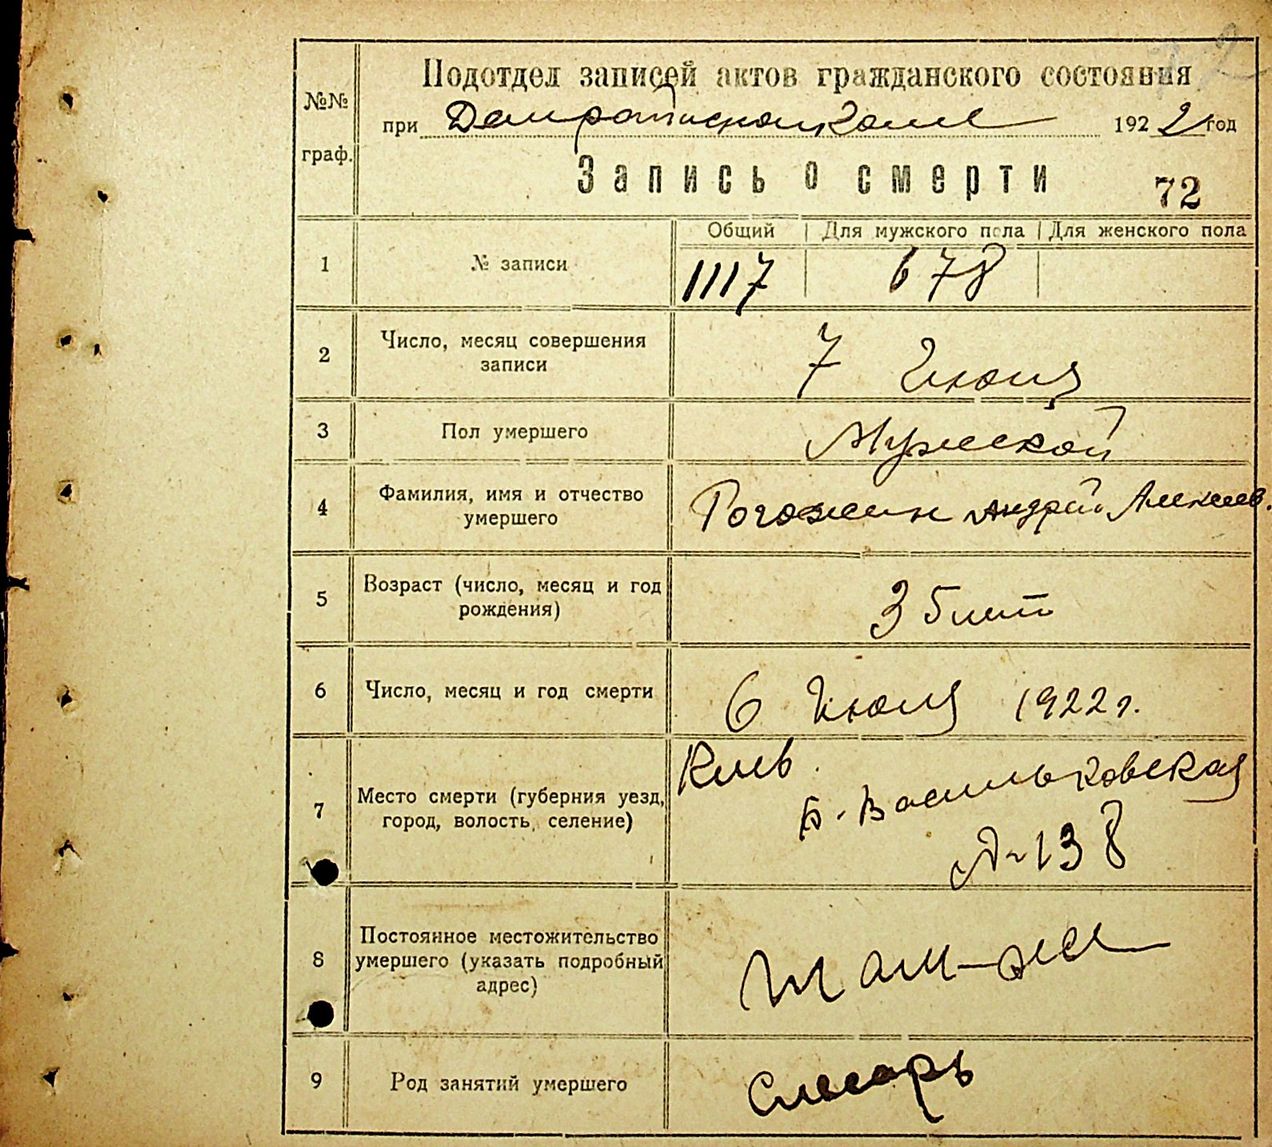 №№ граф.
Подотдел записей актов гражданского состояния
при 1922 год
Запись о смерти 72
Общий Для мужского пола Для женского пола
1 № записи 1117 678
2 Число, месяц совершения записи 7 Июля
3 Пол умершего Мужской
4 Фамилия, имя и отчество умершего Рогожин Андрей Алексеев.
5 Возраст (число, месяц и год рождения) 35 лет
6 Число, месяц и год смерти 6 Июля 1922 г.
7 Место смерти (губерния уезд, город, волость, селение) Киев
Б. Васильковская
№ 138
8 Постоянное местожительство умершего (указать подробный адрес) Там-же
9 Род занятий умершего Слесарь